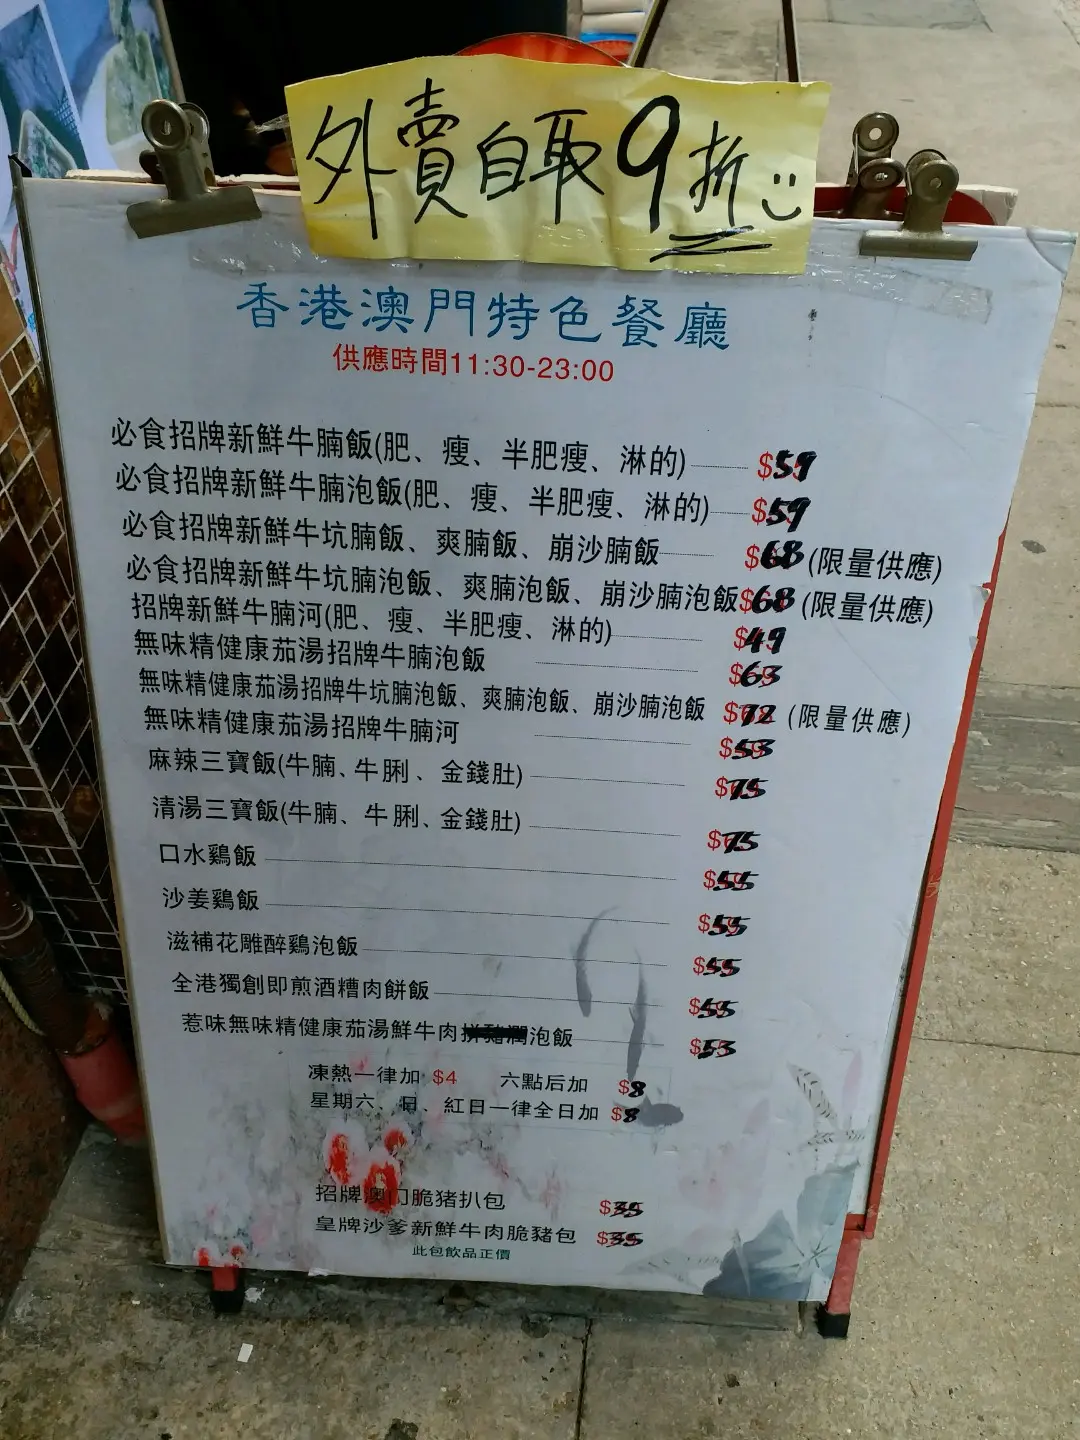 外賣自取9折
香港澳門特色餐廳
供應時間11:30-23:00
必食招牌新鮮牛腩飯(肥、瘦、半肥瘦、淋的) $59
必食招牌新鮮牛腩泡飯(肥、瘦、半肥瘦、淋的) $59
必食招牌新鮮牛坑腩飯、爽腩飯、崩沙腩飯 $68 (限量供應)
必食招牌新鮮牛坑腩泡飯、爽腩泡飯、崩沙腩泡飯 $68 (限量供應)
招牌新鮮牛腩河(肥、瘦、半肥瘦、淋的) $49
無味精健康茄湯招牌牛腩泡飯 $63
無味精健康茄湯招牌牛坑腩泡飯、爽腩泡飯、崩沙腩泡飯 $72 (限量供應)
無味精健康茄湯招牌牛腩河 $53
麻辣三寶飯(牛腩、牛脷、金錢肚) $75
清湯三寶飯(牛腩、牛脷、金錢肚) $75
口水鷄飯 $55
沙姜鷄飯 $55
滋補花雕醉鷄泡飯 $55
全港獨創即煎酒糟肉餅飯 $55
惹味無味精健康茄湯鮮牛肉泡飯 $53
凍熱一律加 $4 六點后加 $8
星期六、日、紅日一律全日加 $8
招牌澳門脆豬扒包 $35
皇牌沙爹新鮮牛肉脆豬包 $35
此包飲品正價